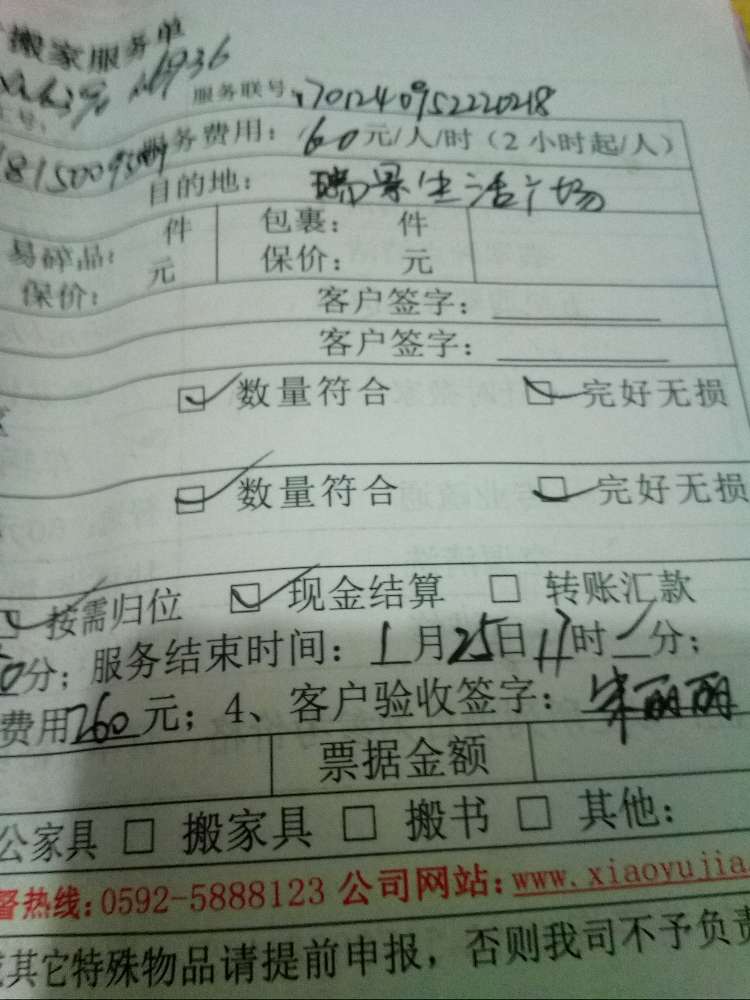 搬家服务单
服务联号: 170124095222021８
服务费用: 60元/人/时 (2小时起/人)
目的地: 瑞景生活广场
易碎品: 件 包裹: 件
保价: 元 保价: 元
客户签字:
客户签字:
数量符合 完好无损
数量符合 完好无损
按需归位 现金结算 转账汇款
0分; 服务结束时间: 1月25日17时/分;
费用260元; 4、客户验收签字: 宋丽丽
票据金额
公家具 □ 搬家具 □ 搬书 □ 其他:
督热线: 0592-5888123 公司网站: www.xiaoyujia
或其它特殊物品请提前申报, 否则我司不予负责